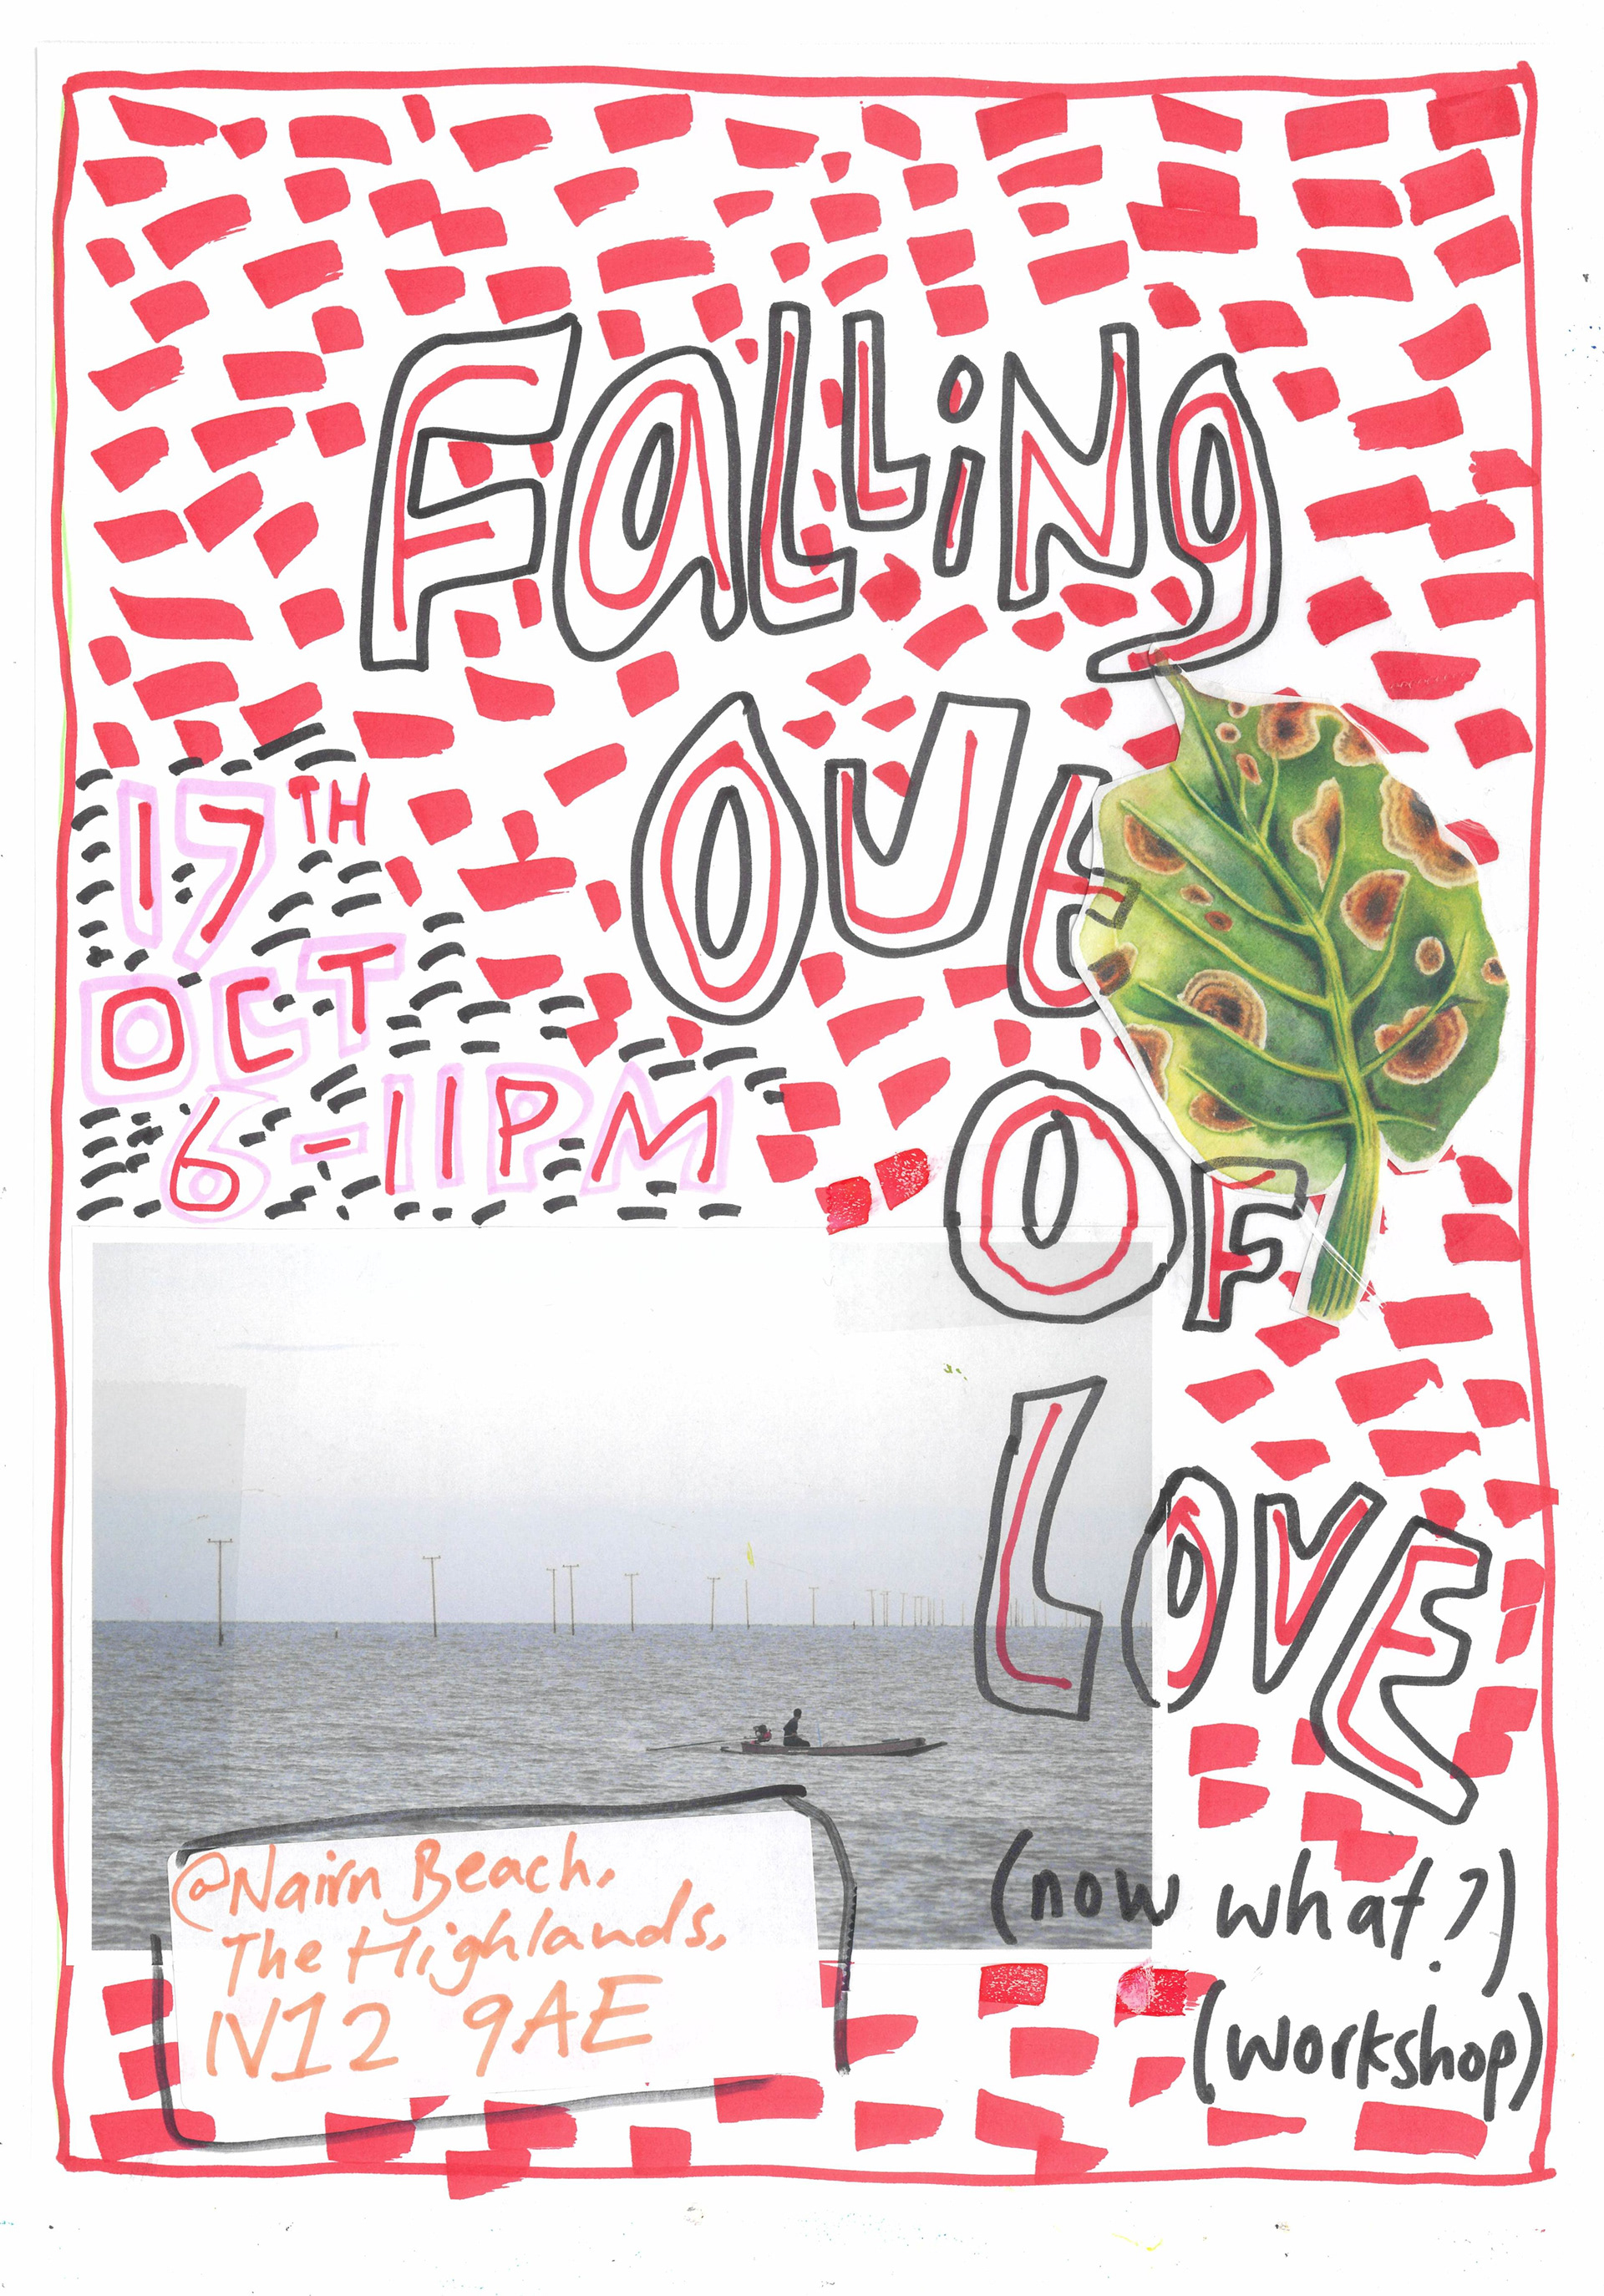 FaLLiNg
OUt
OF
LOVE
17TH
OCT
6-11PM
(now what?)
(workshop)
@Nairn Beach,
The Highlands,
IV12 9AE